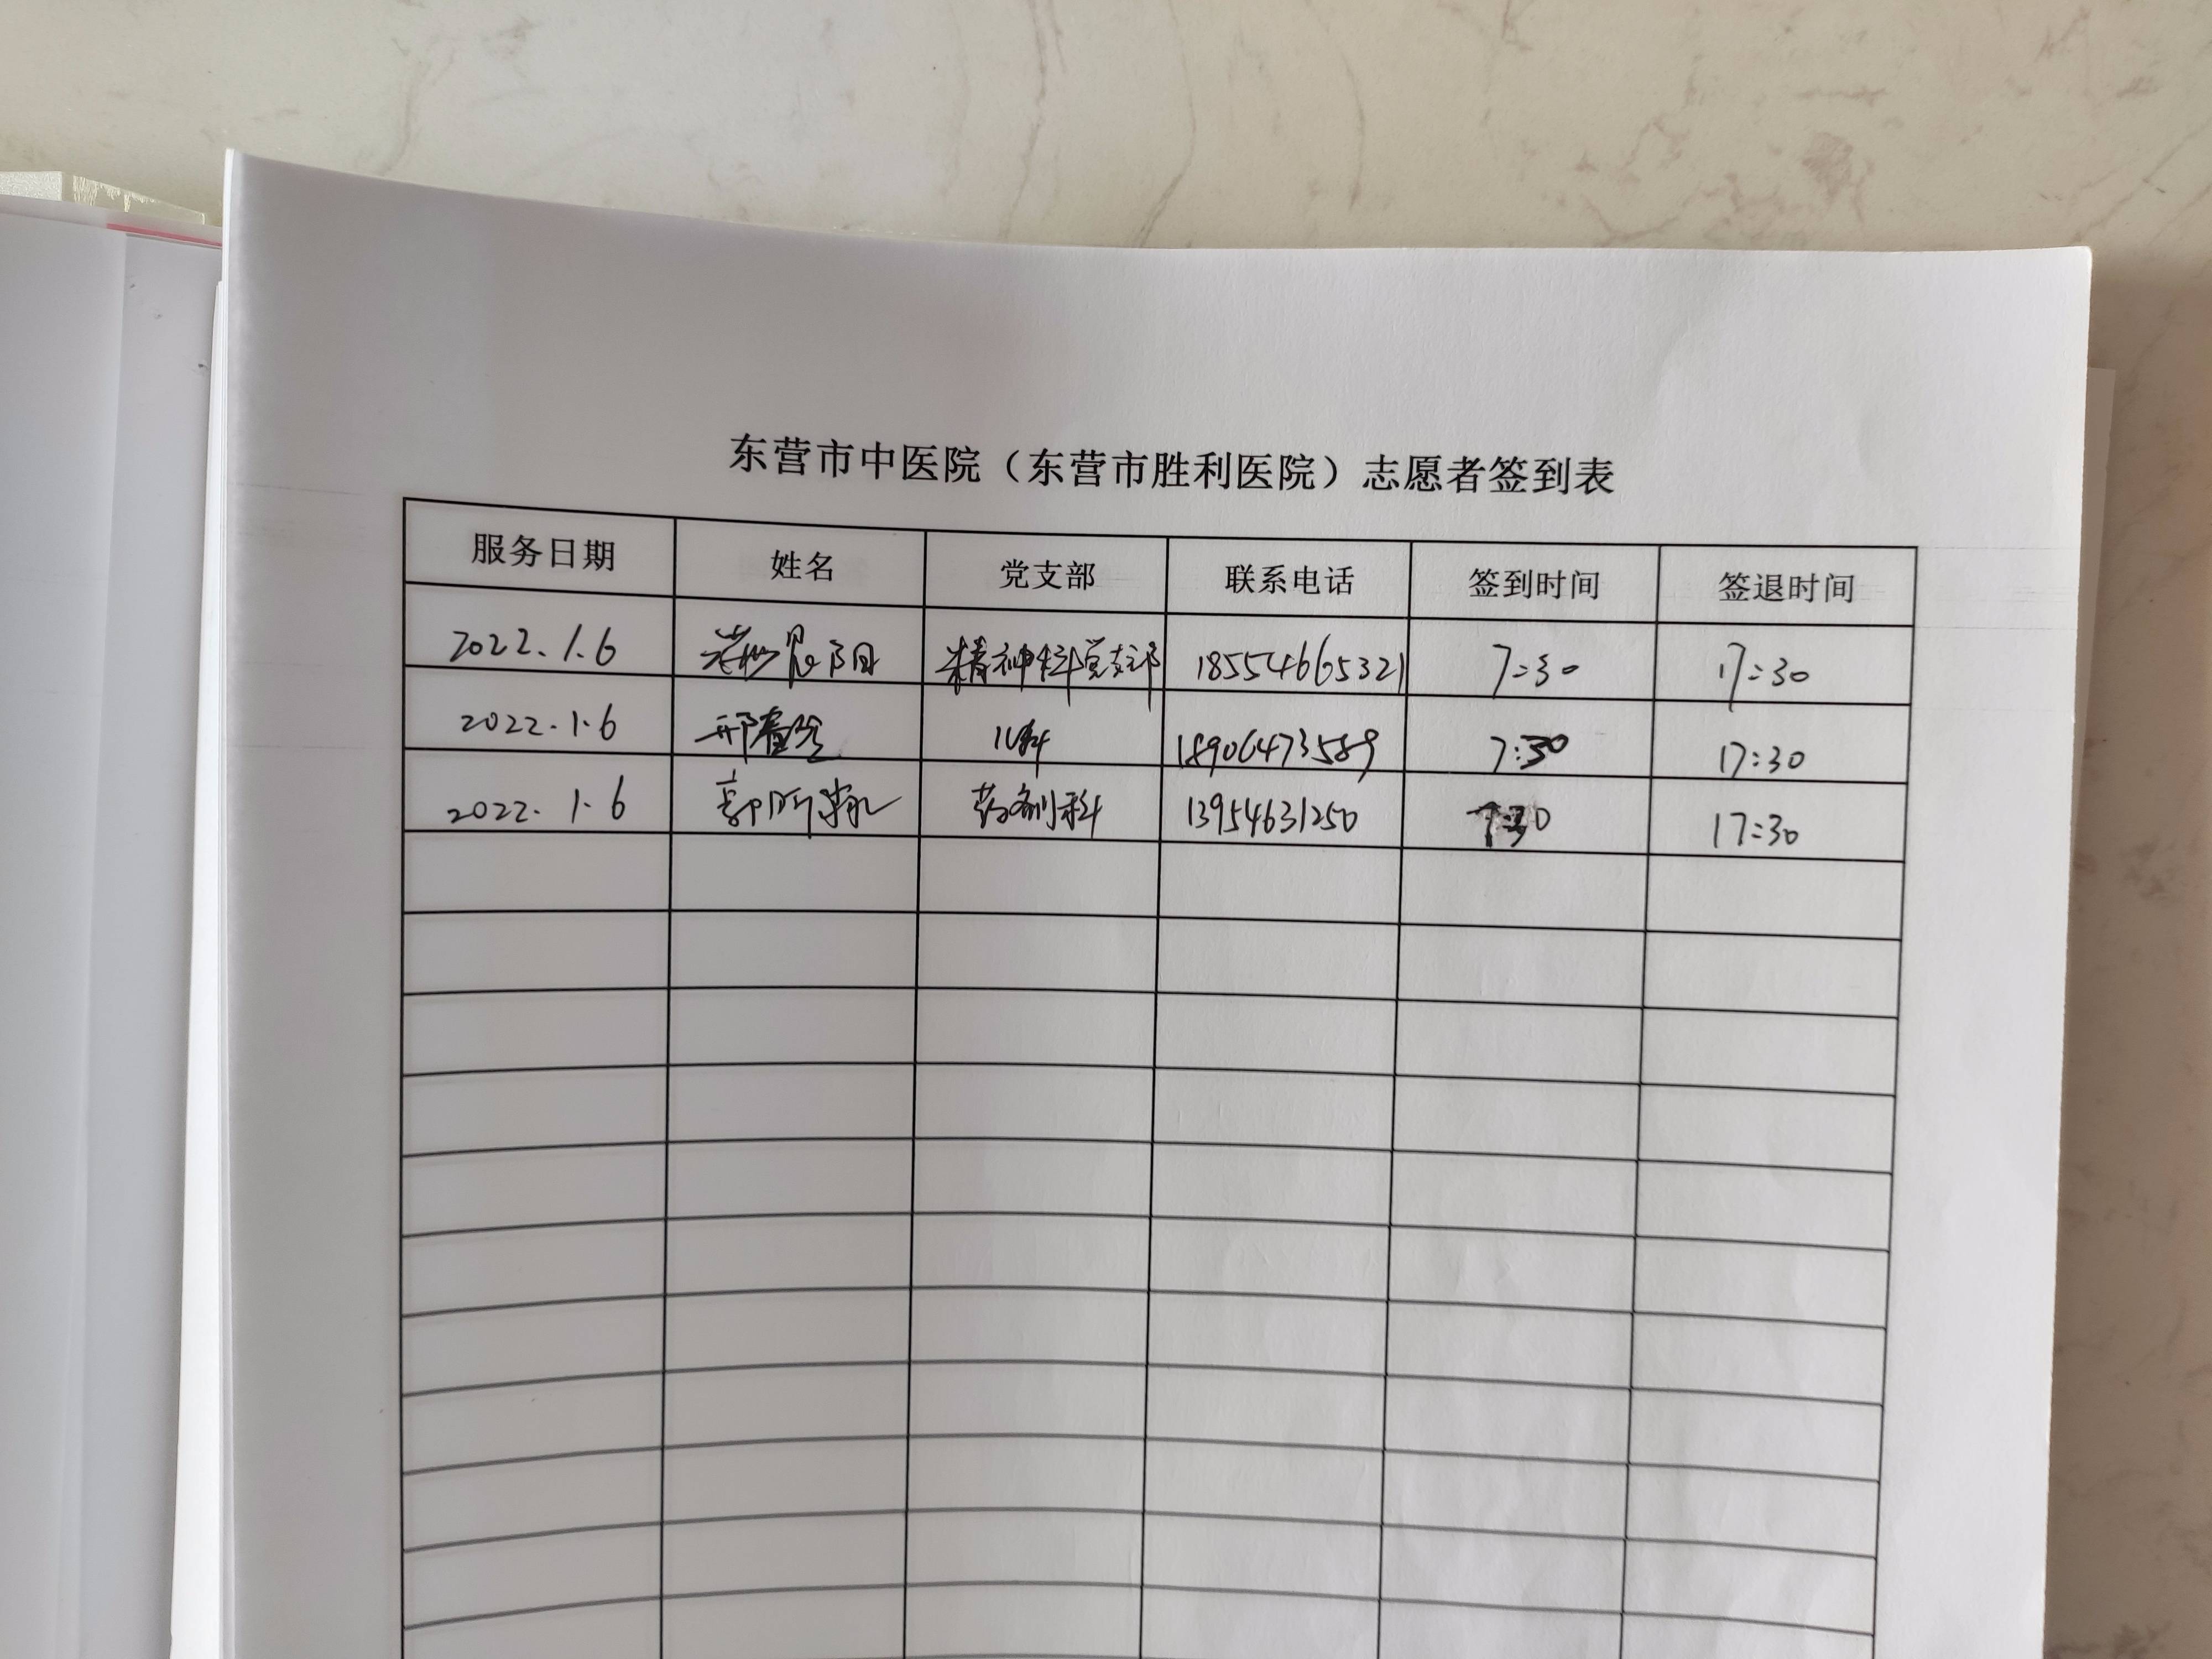 东营市中医院（东营市胜利医院）志愿者签到表
服务日期 姓名 党支部 联系电话 签到时间 签退时间
2022.1.6 晨阳 精神科党支部 18554665321 7:30 17:30
2022.1.6 邢春玲 儿科 18906473589 7:30 17:30
2022.1.6 郭 药剂科 13954631250 7:30 17:30